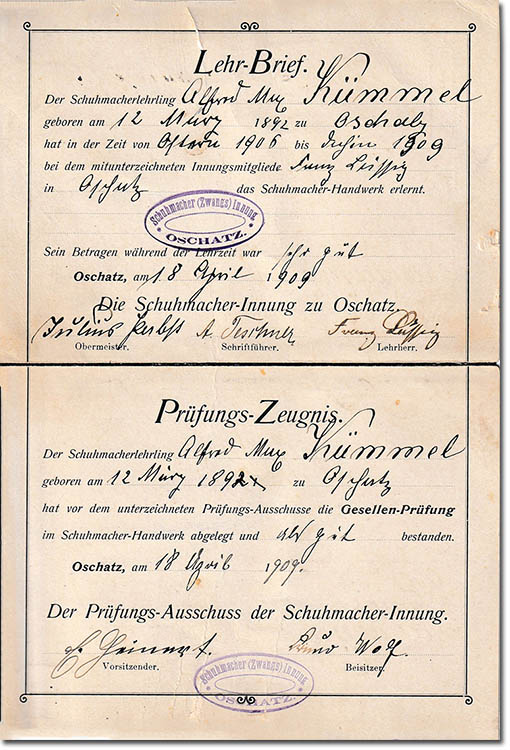 Lehr-Brief.
Der Schuhmacherlehrling Alfred Max Kümmel
geboren am 12 März 1892 zu Oschatz
hat in der Zeit von Ostern 1906 bis dahin 1909
bei dem mitunterzeichneten Innungsmitgliede Franz Lässig
in Oschatz das Schuhmacher-Handwerk erlernt.
Schuhmacher (Zwangs) Innung
OSCHATZ.
Sein Betragen während der Lehrzeit war sehr gut
Oschatz, am 18 April 1909
Die Schuhmacher-Innung zu Oschatz.
Julius Herbst A. Teschner Franz Lässig
Obermeister. Schriftführer. Lehrherr.
Prüfungs-Zeugnis.
Der Schuhmacherlehrling Alfred Max Kümmel
geboren am 12 März 1892 zu Oschatz
hat vor dem unterzeichneten Prüfungs-Ausschusse die Gesellen-Prüfung
im Schuhmacher-Handwerk abgelegt und als gut bestanden.
Oschatz, am 18 April 1909.
Der Prüfungs-Ausschuss der Schuhmacher-Innung.
E. Heinert. Bruno Wolf.
Vorsitzender. Beisitzer.
Schuhmacher (Zwangs) Innung
OSCHATZ.